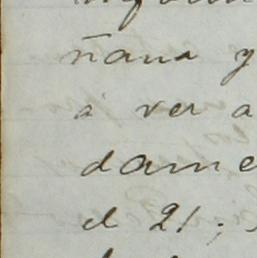 ñana y
á ver a
dame
el 21;